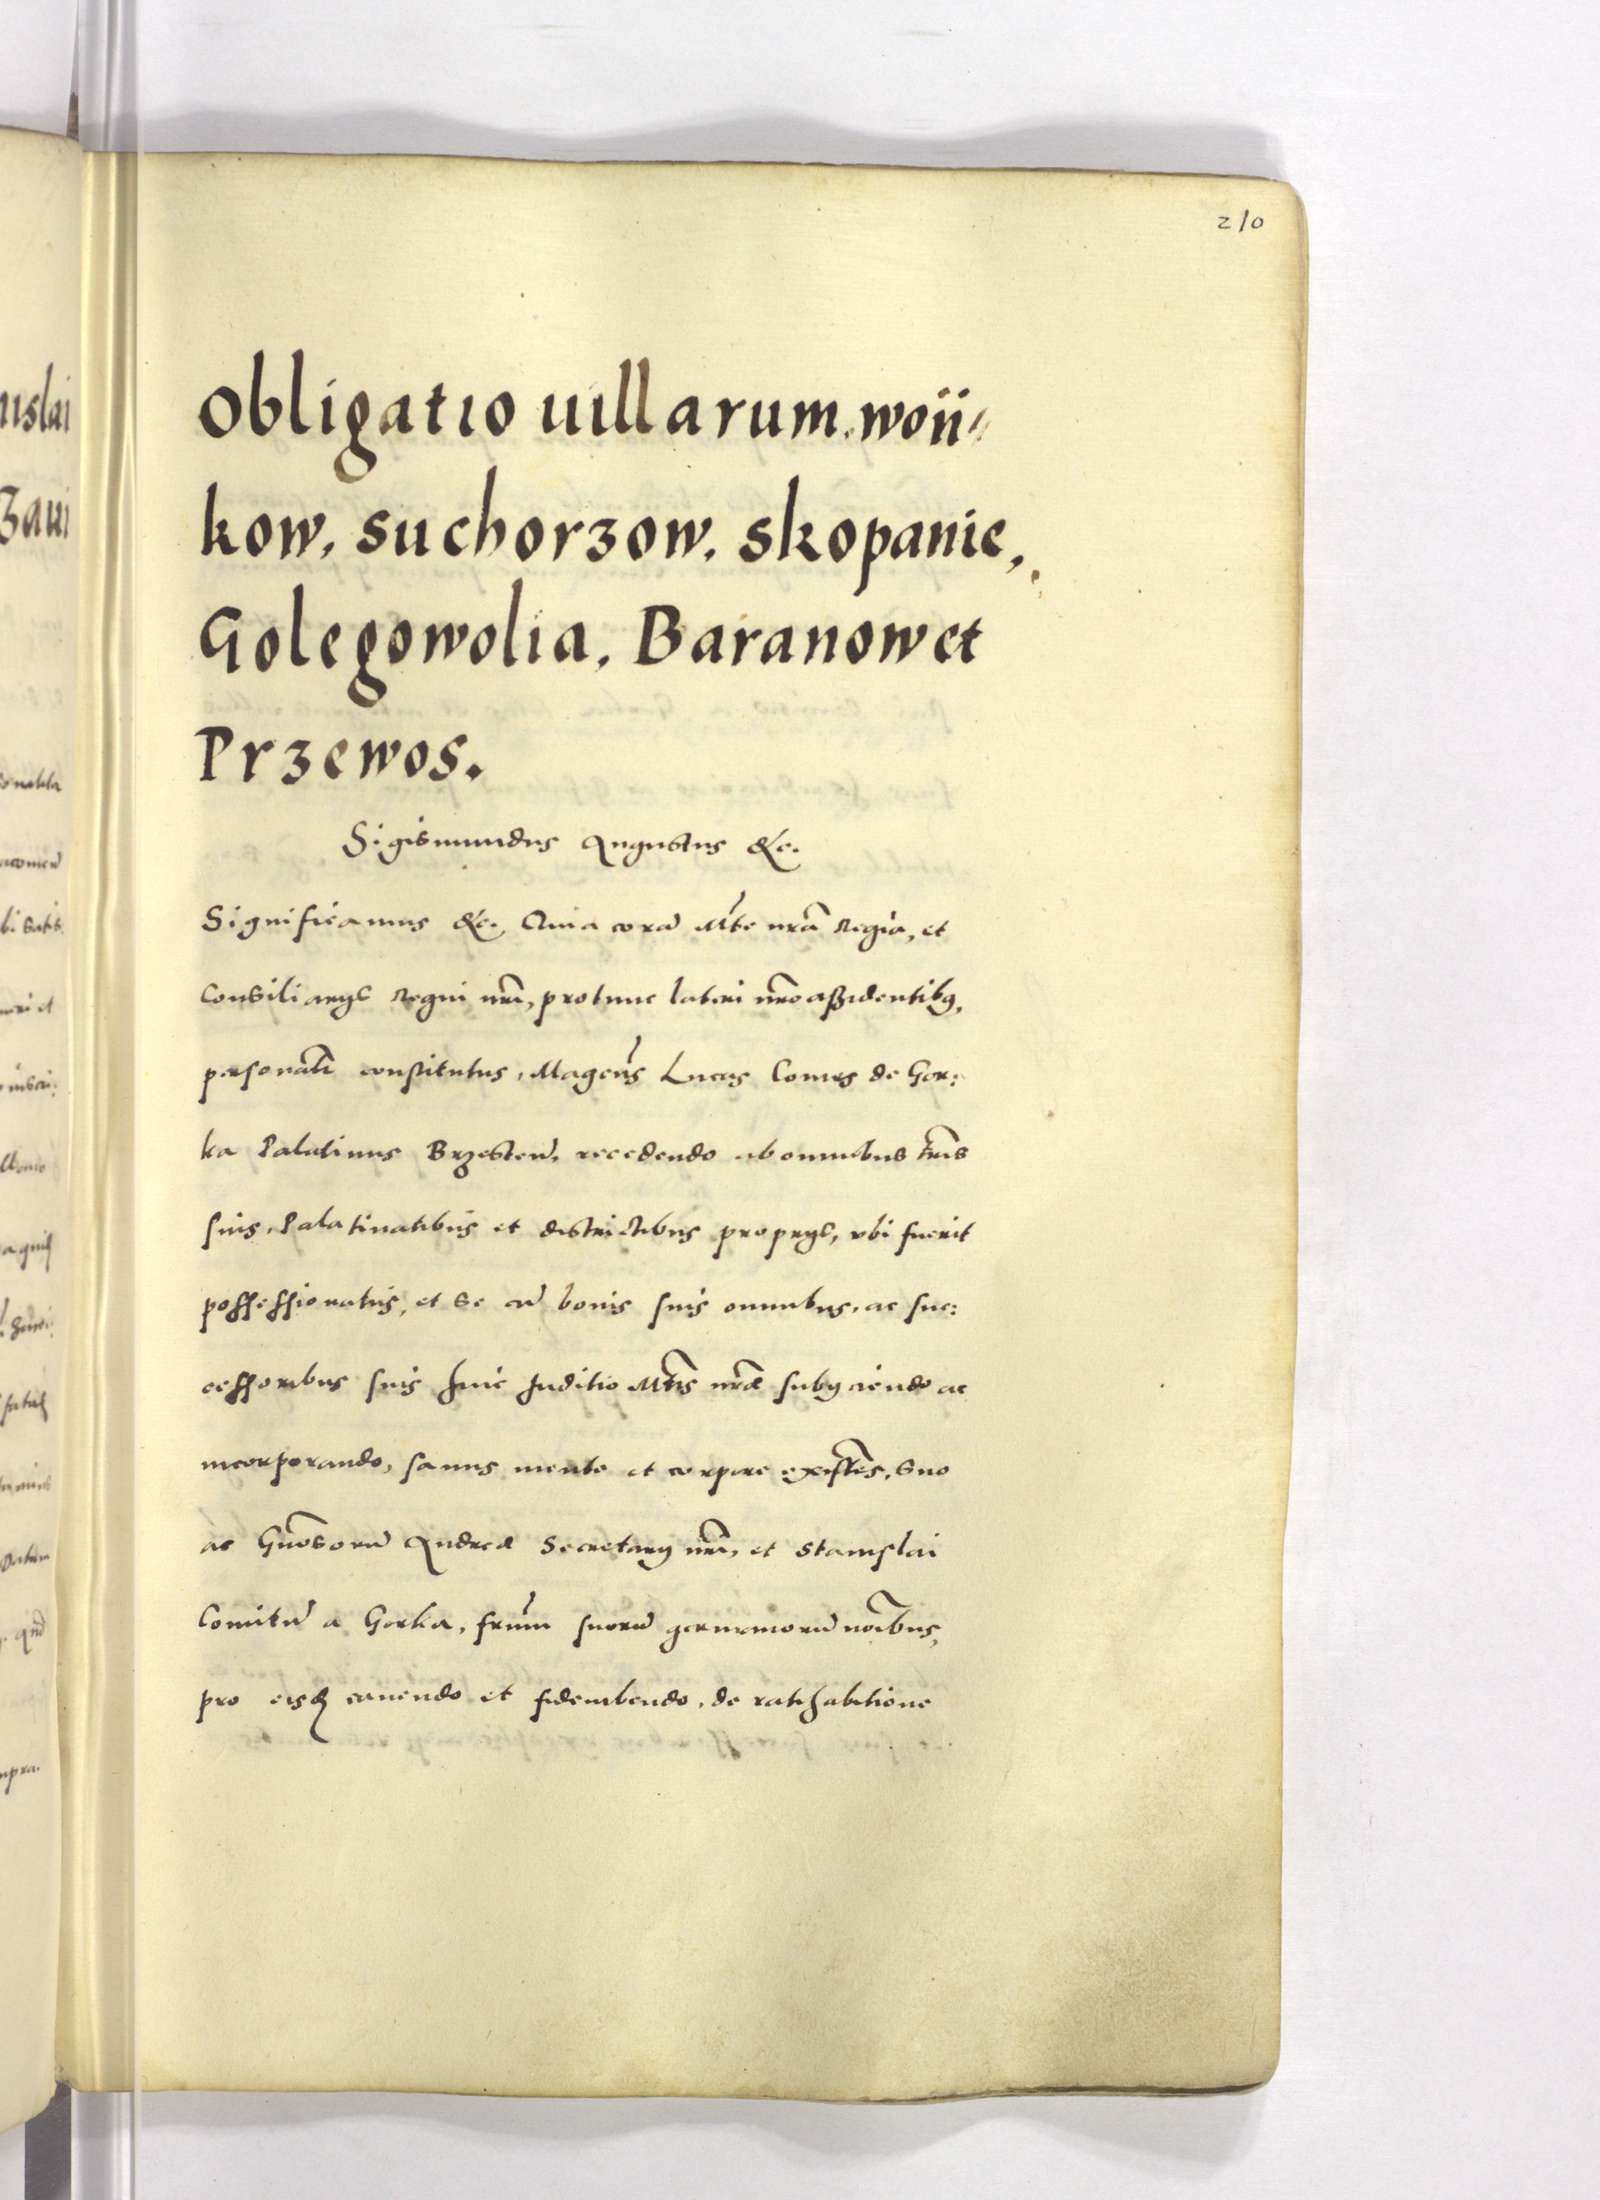 210
Obligatio uillarum. woii⸗
kow, suchorzow, skopanie,
Golegowolia, Baranow et
Przewos.
Sigismundus Augustus &c.
Significamus &c. Quia corã M̃te nr̃a Regia, et
Consiliarijs Regni nr̃i, protunc lateri nr̃o aßidentibus,
personalr̃ constitutus, Magcũs Lucas Comes de Gor:
ka Palatinus Brzesteñ, recedendo ab omnibus tr̃is
suis, Palatinatibus et districtibus proprijs, vbi fuerit
possessionatus, et se cũ bonis suis omnibus, ac suc:
cessoribus suis huic Juditio Mt̃is nr̃ae subijciendo ac
incorporando, sanus mente et corpore existẽs, suo
ac Gñosorũ Andreae Secretarij nr̃i, et Stanislai
Comitũ a Gorka, fr̃um suorũ germanorũ noĩbus,
pro eisdem cauendo et fideiubendo, de ratihabitione